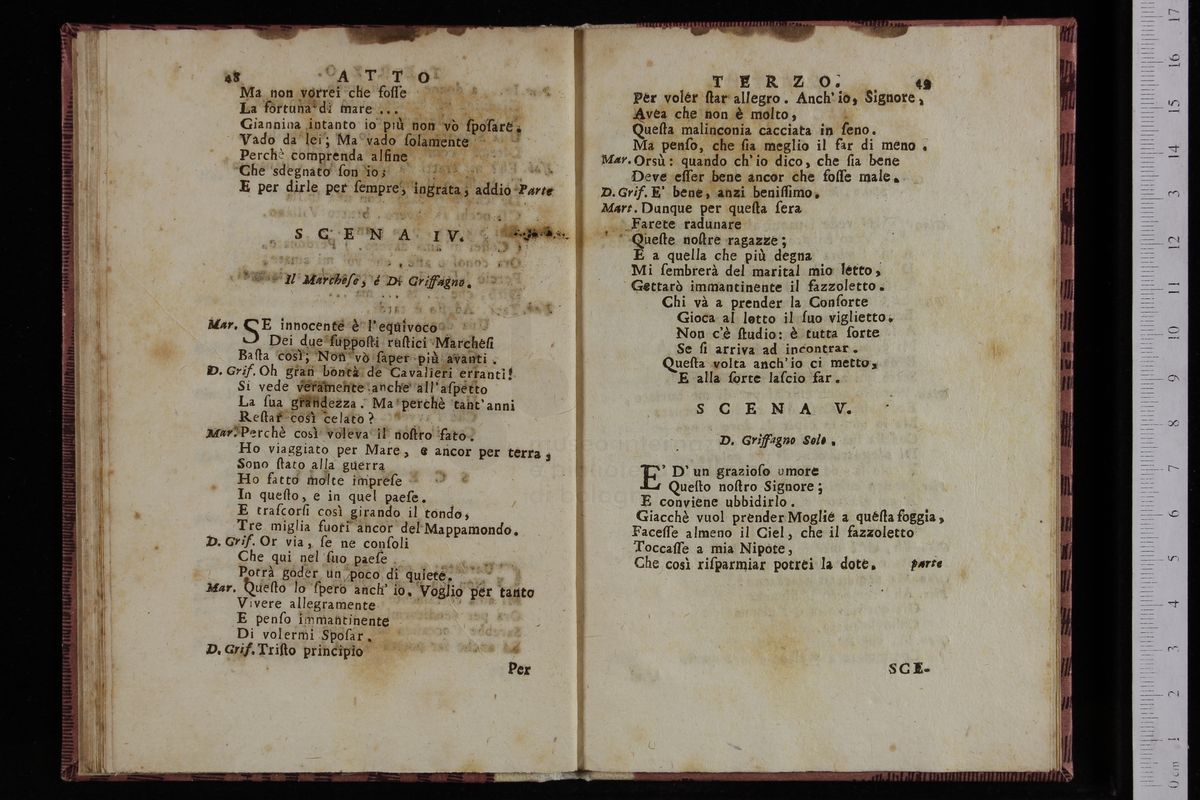 48 ATTO
Ma non vorrei che foſſe
La fortuna di mare ...
Giannina intanto io più non vò ſpoſare.
Vado da lei; Ma vado ſolamente
Perchè comprenda alfine
Che sdegnato ſon io;
E per dirle per ſempre, ingrata, addio Parte
SCENA IV.
Il Marcheſe, é D. Griffagno.
Mar. SE innocente è l'equivoco
Dei due ſuppoſti ruſtici Marcheſi
Baſta così; Non vò ſaper più avanti.
D. Grif. Oh gran bontà de Cavalieri erranti!
Si vede veramente anche all'aſpetto
La ſua grandezza. Ma perchè tant'anni
Reſtar così celato?
Mar. Perchè così voleva il noſtro fato.
Ho viaggiato per Mare, e ancor per terra,
Sono ſtato alla guerra
Ho fatto molte impreſe
In queſto, e in quel paeſe.
E traſcorſi così girando il tondo,
Tre miglia fuori ancor del Mappamondo.
D. Grif. Or via, ſe ne conſoli
Che qui nel ſuo paeſe
Potrà goder un poco di quiete.
Mar. Queſto lo ſpero anch' io. Voglio per tanto
Vivere allegramente
E penſo immantinente
Di volermi Spoſar.
D. Grif. Triſto principio
Per
TERZO. 49
Per volér ſtar allegro. Anch' io, Signore,
Avea che non è molto,
Queſta malinconia cacciata in ſeno.
Ma penſo, che ſia meglio il far di meno.
Mar. Orsù: quando ch' io dico, che ſia bene
Deve eſſer bene ancor che foſſe male.
D. Grif. E' bene, anzi beniſſimo.
Mart. Dunque per queſta ſera
Farete radunare
Queſte noſtre ragazze;
E a quella che più degna
Mi ſembrerà del marital mio letto,
Gettarò immantinente il fazzoletto.
Chi và a prender la Conſorte
Gioca al lotto il ſuo viglietto.
Non c'è ſtudio: è tutta ſorte
Se ſi arriva ad incontrar.
Queſta volta anch' io ci metto,
E alla ſorte laſcio far.
SCENA V.
D. Griffagno Solo.
E' D' un grazioſo umore
Queſto noſtro Signore;
E conviene ubbidirlo.
Giacchè vuol prender Moglie a quéſta foggia,
Faceſſe almeno il Ciel, che il fazzoletto
Toccaſſe a mia Nipote,
Che così riſparmiar potrei la dote. parte
SCE-
0 cm 1 2 3 4 5 6 7 8 9 10 11 12 13 14 15 16 17